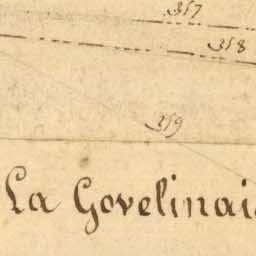 357
358
359
La Govelinai